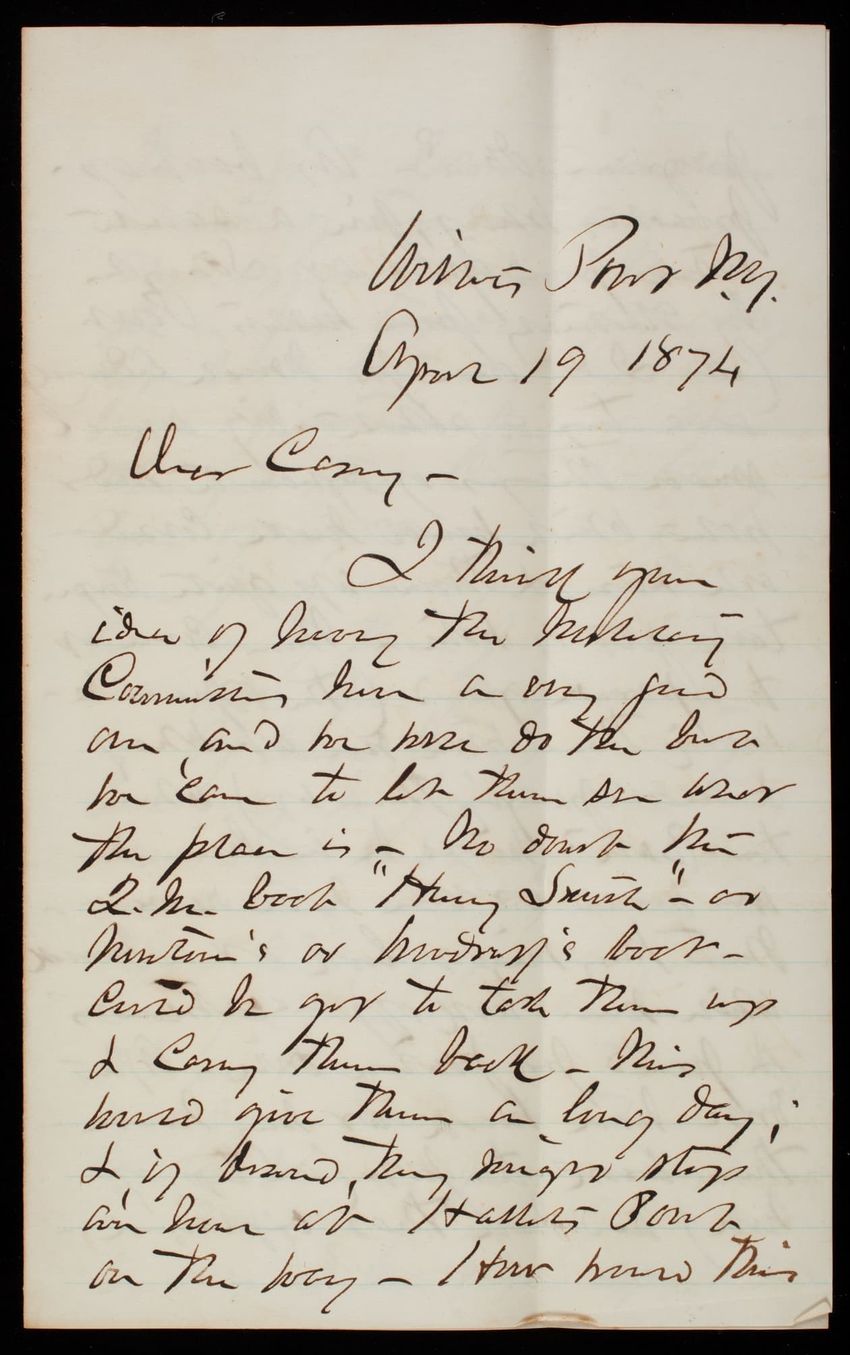 Willets Point N.Y.
April 19 1874
Dear Casey –
I think your
idea of having the Military
Committees here a very good
one, and we will do the best
we can to let them see what
the place is – No doubt the
Q.M. boat "Henry Smith" – or
Newton's or Woodruff's boat –
could be got to take them up
& carry them back – This
would give them a long day;
& if desired, they might stop
an hour at Halletts Point
on the way – How would this